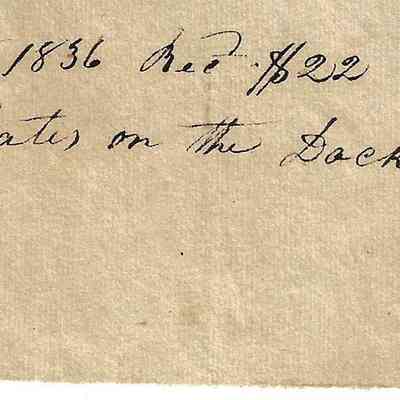 1836 Recd $22
ates on the Dock